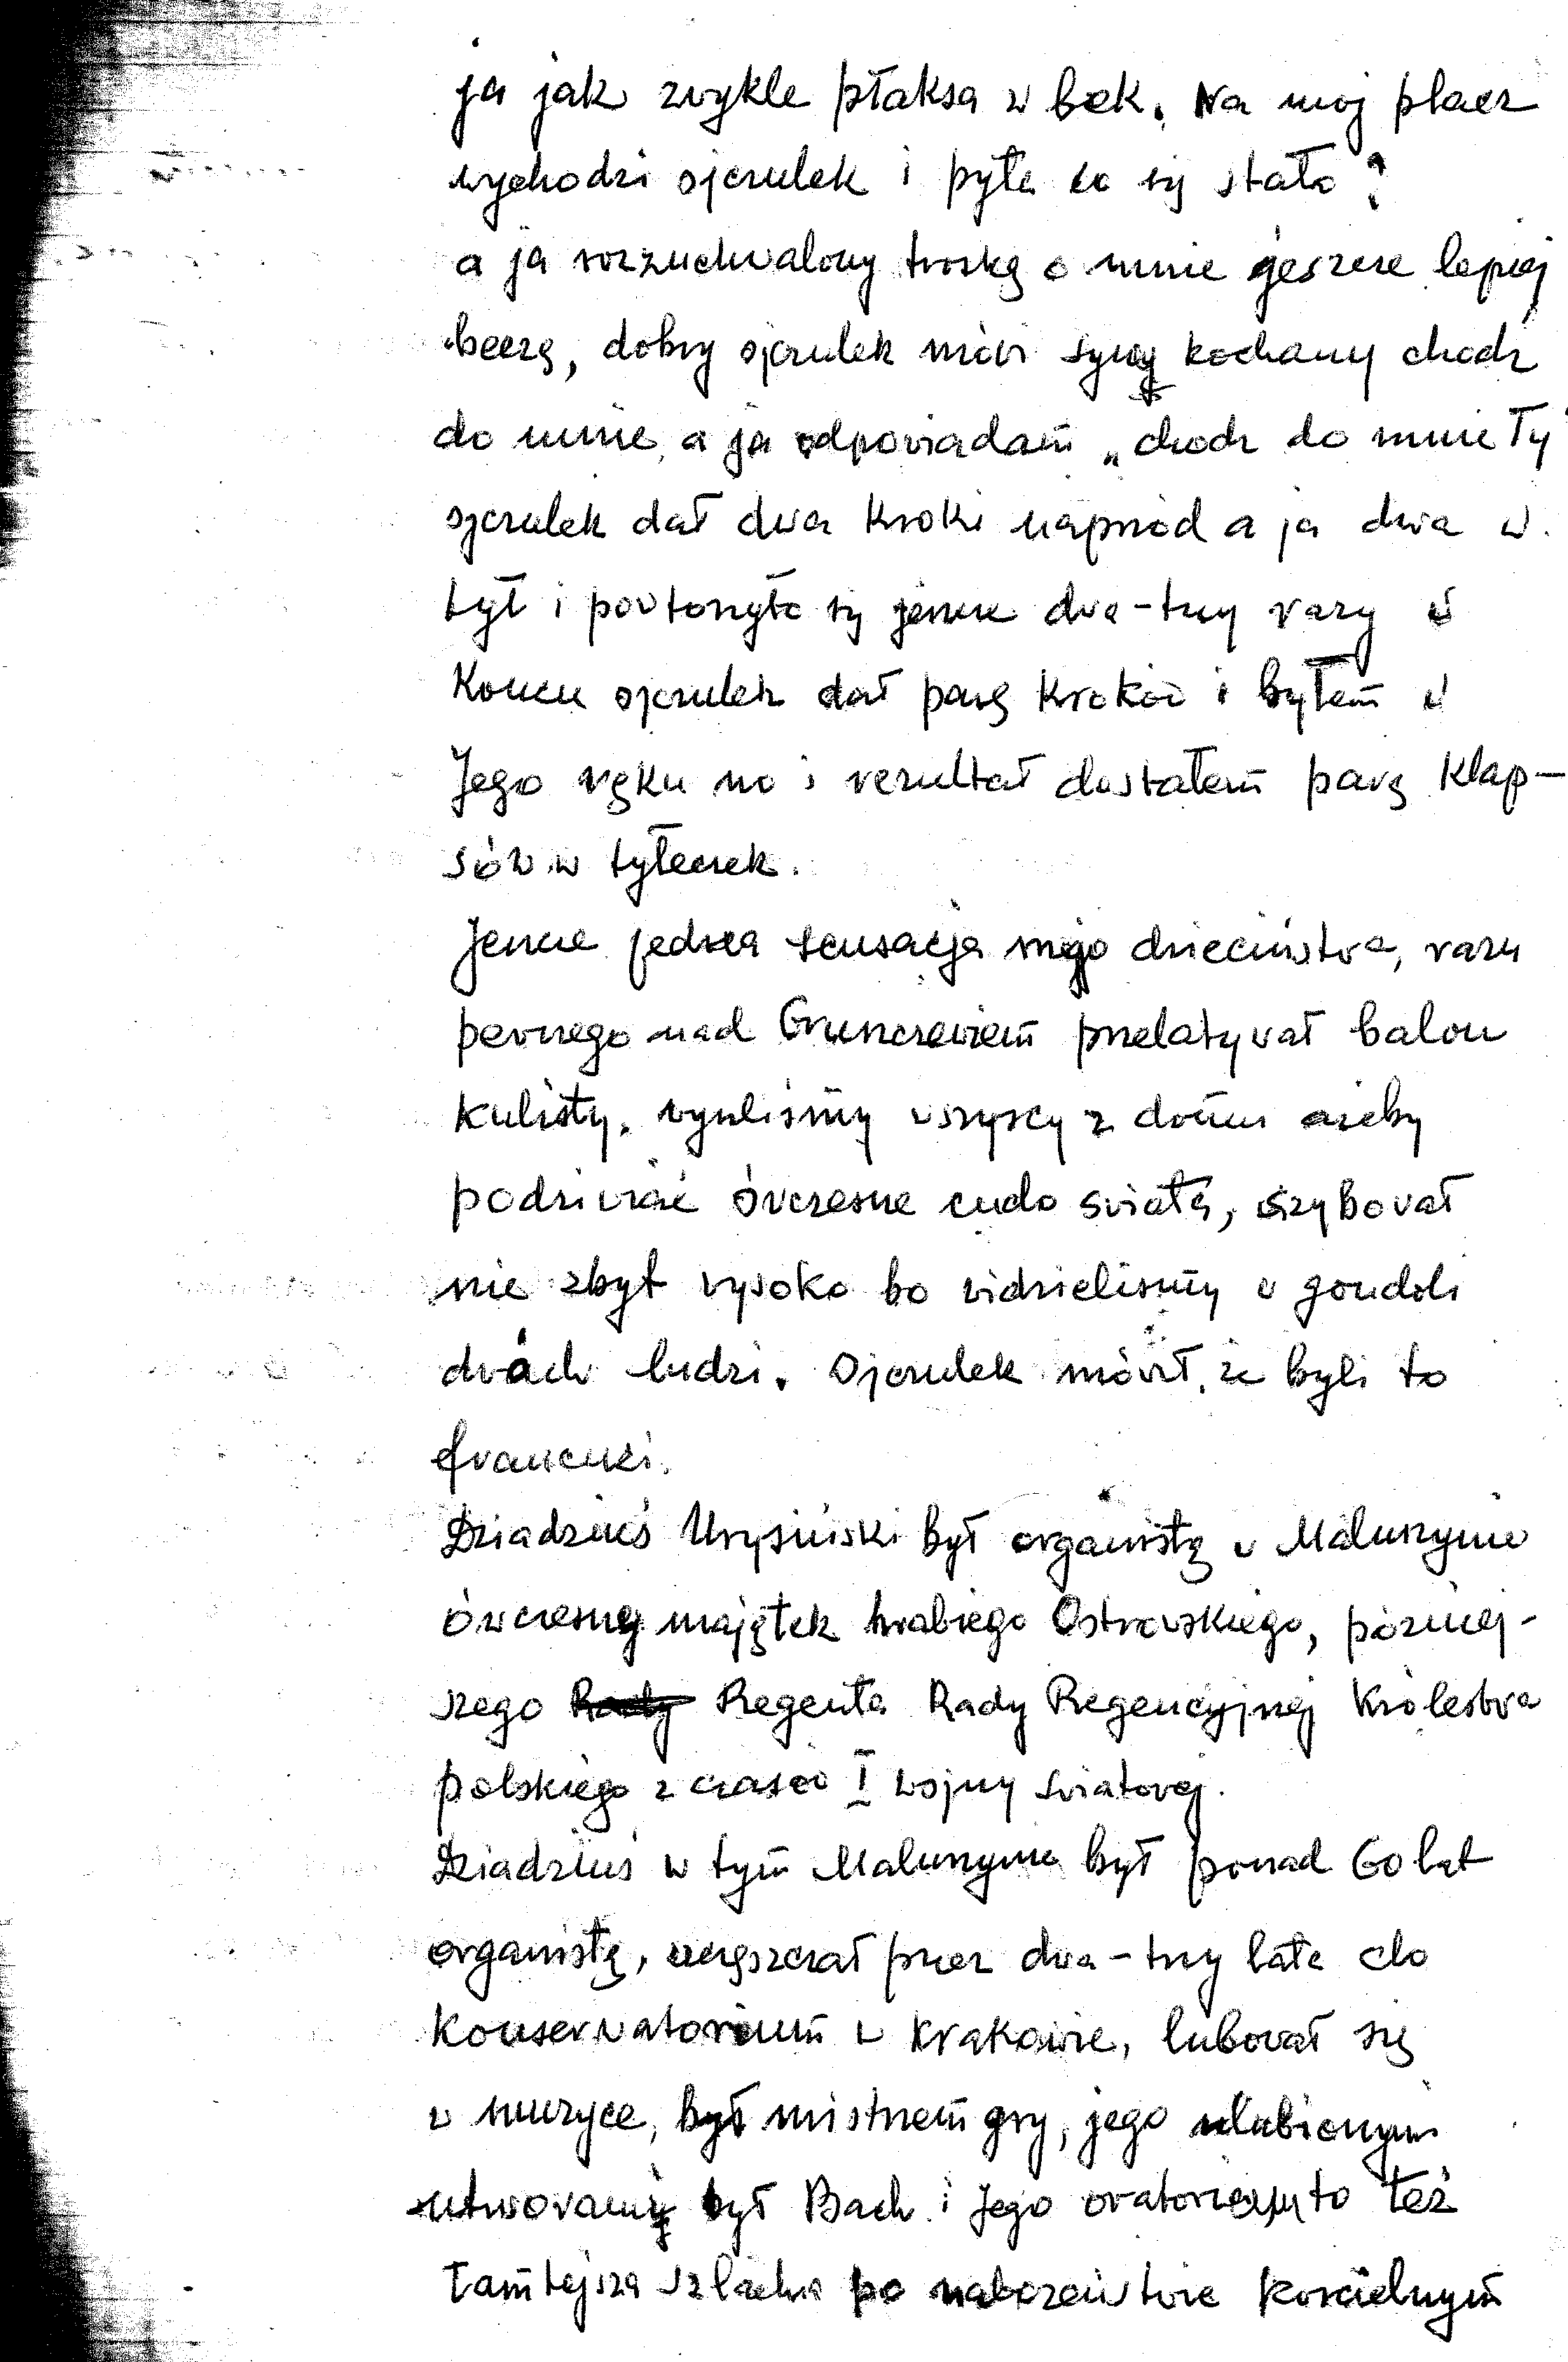 ja jak zwykle płaksa w bek. Na moj płacz
wychodzi ojczulek i pyta co się stało?
a ja rozzuchwalony troską o mnie jeszcze lepiej
beczę, dobry ojczulek mówi synu kochany chodz
do mnie, a ja odpowiadam „chodz do mnie Ty"
ojczulek dał dwa kroki naprzod a ja dwa w
tył i powtorzyło się jeszcze dwa-trzy razy w
koncu ojczulek dał parę kroków i byłem w
Jego ręku no i rezultat dostałem parę klap-
sów w tyłeczek.
Jeszcze jedna sensacja mego dziecinstwa, razu
pewnego nad Gruszczewiem przelatywał balon
kulisty, wyszlismy wszyscy z domu azeby
podziwiać ówczesne cudo swiata, szybował
nie zbyt wysoko bo widzielismy w gondoli
dwóch ludzi. Ojczulek mówił, że byli to
francuzi.
Dziadziuś Urysiński był organistą w Maluszynie
ówczesny majątek hrabiego Ostrowskiego, pózniej-
szego Rady Regenta Rady Regencyjnej Królestwa
polskiego z czasów I wojny swiatowej.
Dziadziuś w tym Maluszynie był ponad 60 lat
organistą, uczęszczał przez dwa-trzy lata do
Konserwatorium w Krakowie, lubował się
w muzyce, był mistrzem gry, jego ulubionymi
utworami był Bach i Jego oratoria, to też
tamtejsza szlachta po nabozeństwie koscielnym